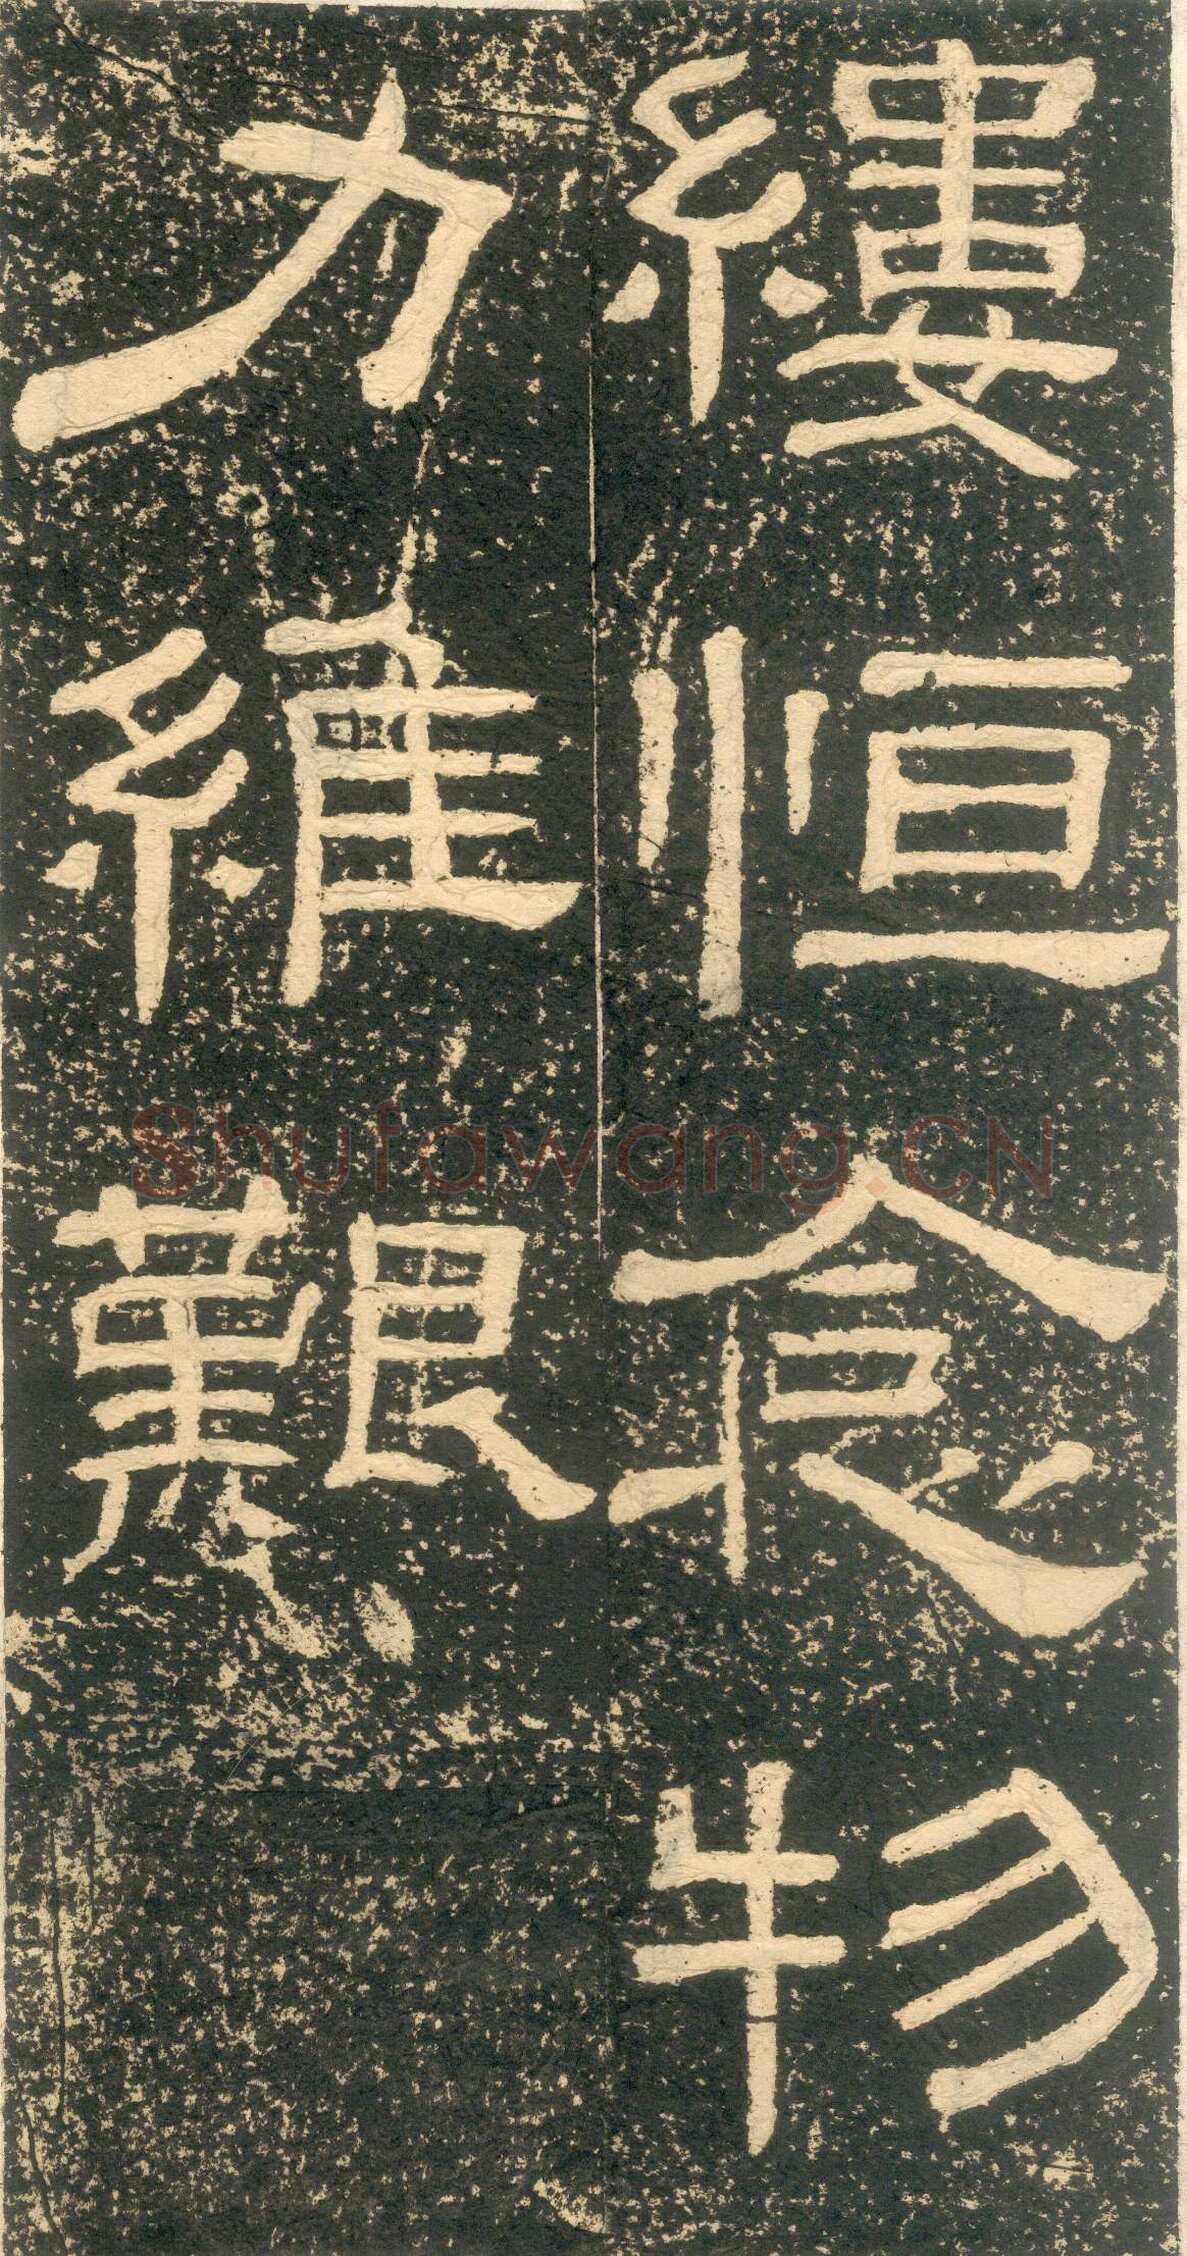 縷恒念物
力維艱
Shufawang.CN